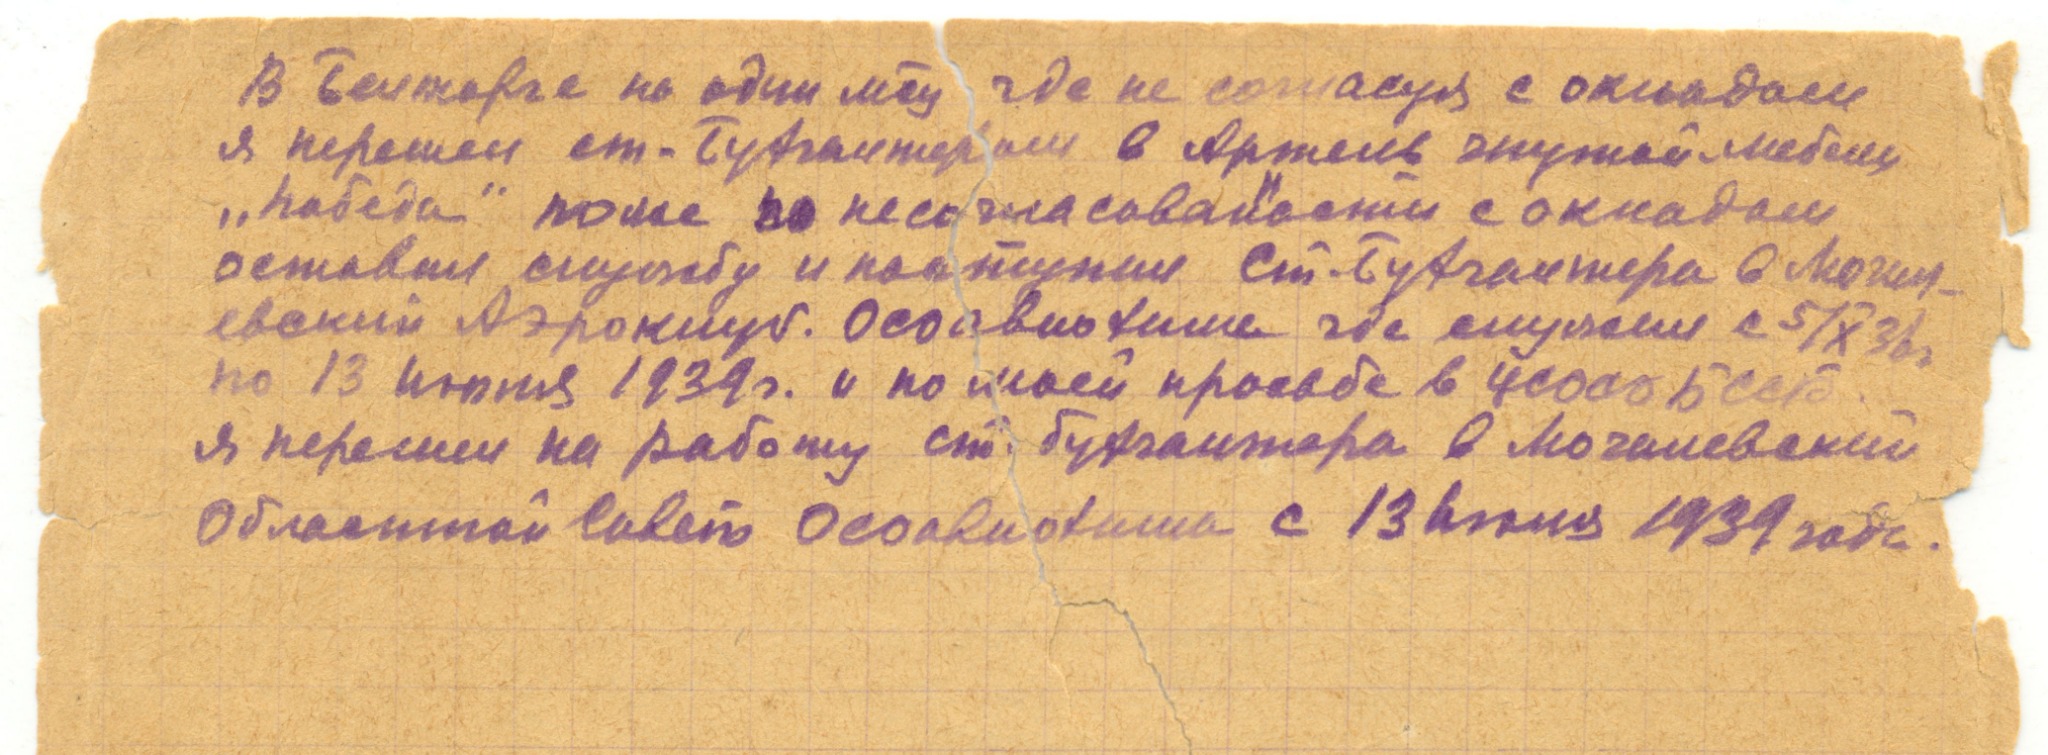 В Белторге на один м-ц где не согласуя с окладом
я перешел ст-Бухгалтером в Артель гнутой мебели
„Победа" тоже по несогласованости с окладом
оставил службу и поступил Ст-Бухгалтера в Могил-
евский Аэроклуб. Осоавиахима где служил с 5/IX 36г
по 13 Июня 1939г. и по моей просьбе в
я перешел на работу ст. бухгалтера в Могилевский
Областной Совет Осоавиахима с 13 Июня 1939 года.